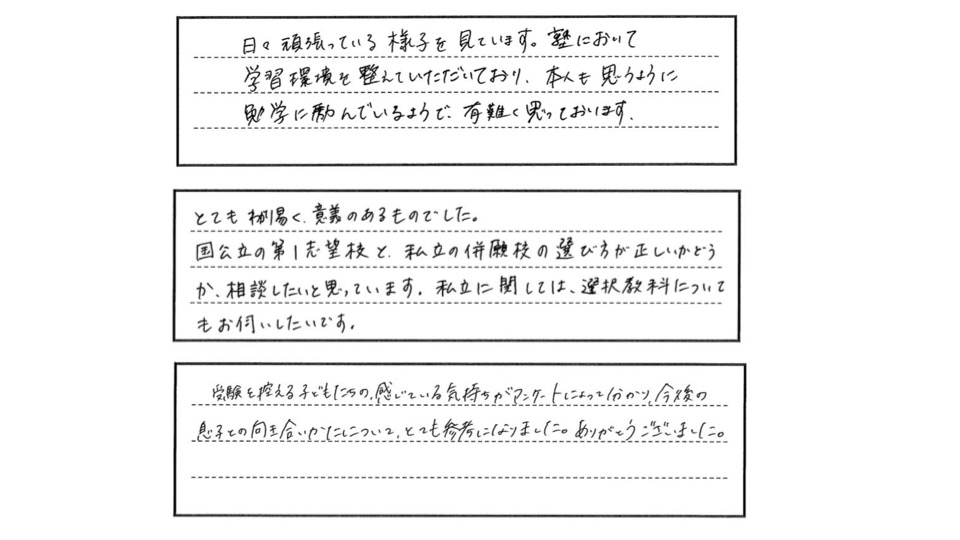 日々頑張っている様子を見ています。塾において
学習環境を整えていただいており、本人も思うように
勉学に励んでいるようで、有難く思っております。
とても 易く、意義のあるものでした。
国公立の第1志望校と、私立の併願校の選び方が正しいかどう
か、相談したいと思っています。私立に関しては、選択教科について
もお伺いしたいです。
受験を控える子どもたちの、感じている気持ちがアンケートによって分かり、今後の
息子との向き合いかたについて、とても参考になりました。ありがとうございました。